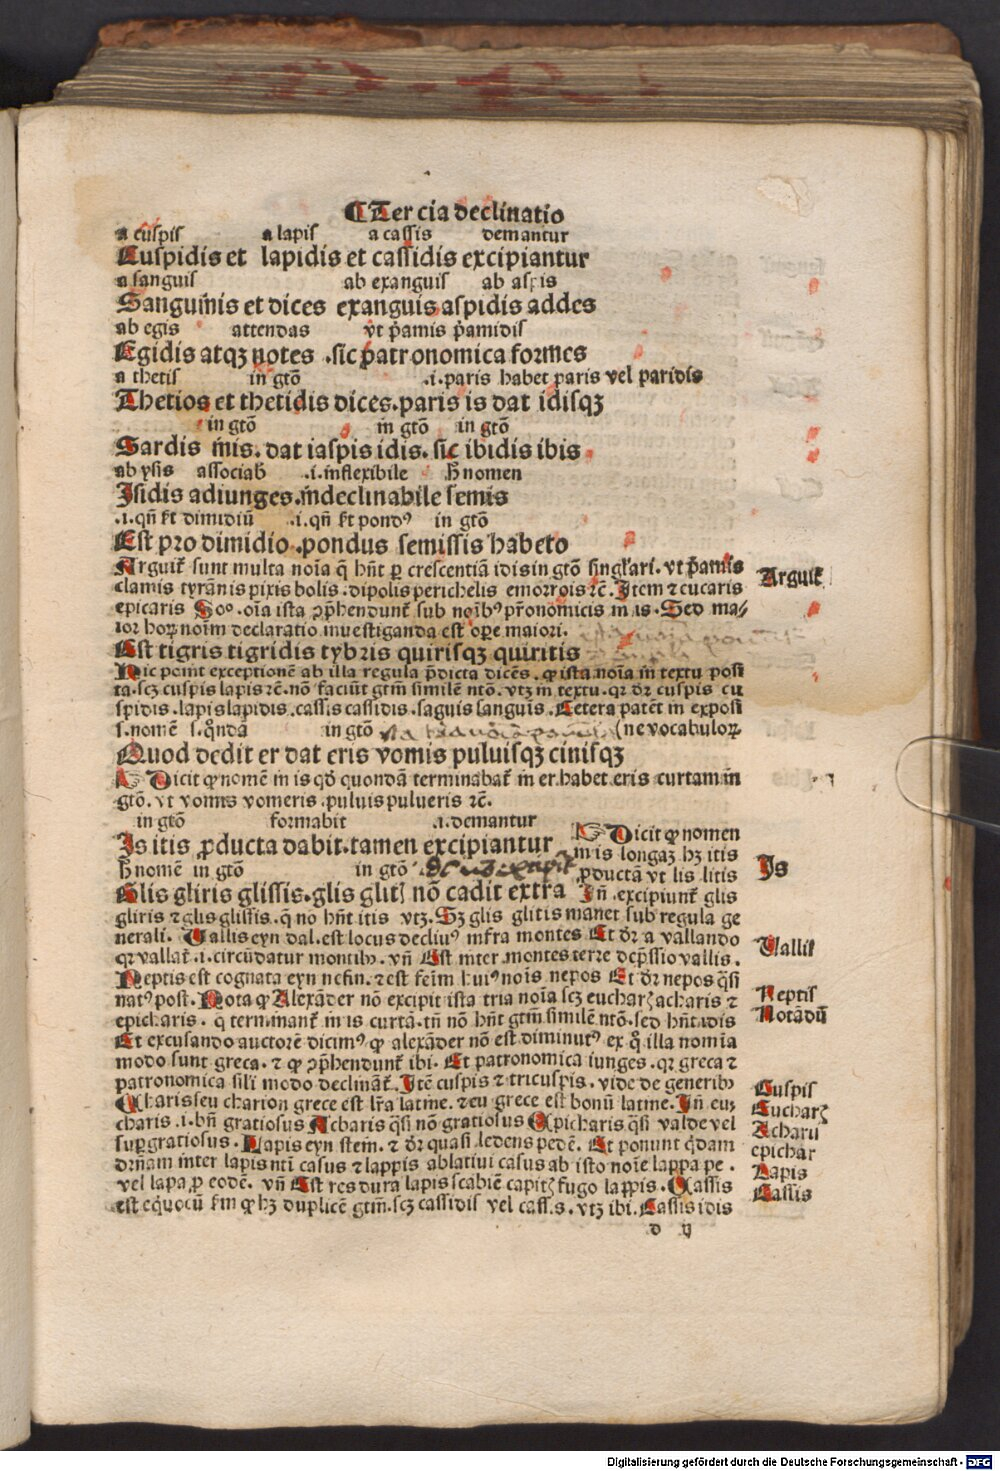 ¶Tercia declinatio
a cuſpiſ a lapiſ a caſſis demantur
Cuſpidis et lapidis et caſſidis excipiantur
a ſanguiſ ab exanguiſ ab aſpis
Sanguinis et dices exanguis aſpidis addes
ab egis attendas vt p̄amis p̄amidiſ
Egidis atqꝫ notes .ſic patronomica formes
a thetiſ in gt̄o .i. paris habet paris vel paridis
Thetios et thetidis dices.paris is dat idiſqꝫ
in gt̄o in gt̄o in gt̄o
Sardis inis. dat iaſpis idis. ſic ibidis ibis
ab yſis aſſociab̄ .i. inflexibile h̄ nomen
Iſidis adiunges.indeclinabile ſemis
.i. qn̄ ſt dimidiū .i. qn̄ ſt pondꝰ in gt̄o
Eſt pro dimidio .pondus ſemiſſis habeto
Arguiť ſunt multa noīa q̄ hn̄t ꝑ creſcentiā idis in gt̄o ſingľari. vt p̄amis
clamis tyrānis pixis bolis .dipolis perichelis emorrois ꝛc̄. Item ⁊ cucaris
epicaris So⁰. oīa iſta ꝯp̄hendunť ſub noībꝰ pr̄onomicis in is. Sed ma⸗
ior hoꝝ noīm declaratio inueſtiganda eſt oꝑe maiori.
Eſt tigris tigridis tybris quiriſqꝫ quiritis
Hic ponit exceptionē ab illa regula p̄dicta dicēs. ꝙ iſta noīa in textu poſi
ta.ſcꝫ cuſpis lapis ꝛc̄.nō faciūt gtm̄ ſimilē ntō. vtꝫ in textu.qꝛ dr̄ cuſpis cu
ſpidis .lapis lapidis .caſſis caſſidis .ſaguis ſanguīs .Cetera patēt in expoſi
ſ.nomē ſ.q̊ndā in gt̄o (ne vocabuloꝝ
Quod dedit er dat eris vomis puluiſqꝫ ciniſqꝫ
Dicit ꝙ nomē in is qd̄ quondā terminabať in er.habet eris curtam in
gt̄o. vt vomis vomeris .puluis pulueris ꝛc̄.
in gt̄o formabit .i. demantur
Is itis ꝓducta dabit.tamen excipiantur
Dicit ꝙ nomen
in is longaꝫ hꝫ itis
ꝓductā vt lis litis
Is
h̄ nomē in gt̄o in gt̄o
Glis gliris gliſſis.glis glitꝭ nō cadit extra In̄ .excipiunť glis
gliris ⁊ glis gliſſis. q̄ nō hn̄t itis vtꝫ. Sꝫ glis glitis manet ſub regula ge
nerali. Vallis eyn dal.eſt locus decliuꝰ infra montes Et dr̄ a vallando
qꝛ vallať .i. circūdatur montibꝰ. vn̄ Eſt inter montes terre dep̄ſſio vallis.
Neptis eſt cognata eyn nefin. ⁊ eſt fem̄ huiꝰ noīs nepos Et dr̄ nepos q̄ſi
natꝰ poſt. Nota ꝙ Alexāder nō excipit iſta tria noīa ſcꝫ eucharꝭ acharis ⁊
epicharis. q̄ terminanť in is curtā.tn̄ nō hn̄t gtm̄ ſimilē ntō.ſed hn̄t idis
Et excuſando auctorē dicimꝰ ꝙ alexāder nō eſt diminutꝰ ex q̊ illa nomīa
modo ſunt greca. ⁊ ꝙ ꝯp̄hendunť ibi. Et patronomica iunges. qꝛ greca ⁊
patronomica ſilī modo declināť. Itē cuſpis ⁊ tricuſpis. vide de generibꝰ
Charis ſeu charion grece eſt lr̄a latine. ⁊ eu grece eſt bonū latine. In̄ eu⸗
charis .i. bn̄ gratioſus Acharis q̄ſi nō gratioſus Epicharis q̄ſi valde vel
ſupgratioſus. Lapis eyn ſtein. ⁊ dr̄ quaſi ledens pedē. Et ponunt q̄dam
dr̄nam inter lapis nti̅ caſus ⁊ lappis ablatiui caſus ab iſto noīe lappa pe.
vel lapa ꝓ eodē. vn̄ Eſt res dura lapis ſcabiē capitꝭ fugo lappis. Caſſis
eſt eq̇uocū ſm̄ ꝙ hꝫ duplicē gtm̄.ſcꝫ caſſidis vel caſſis. vtꝫ ibi. Caſſis idis
d ij
Arguiť
Vallis
Neptis
Notādū
Cuſpis
Eucharꝭ
Acharis
epichar
Lapis
Caſſis
Digitalisierung gefördert durch die Deutsche Forschungsgemeinschaft - DFG